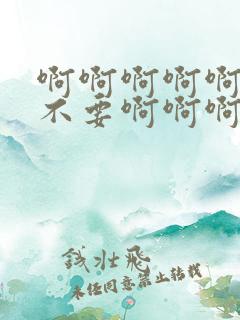 啊啊啊啊啊
不要啊啊啊
钱壮飞
未经同意禁止转载